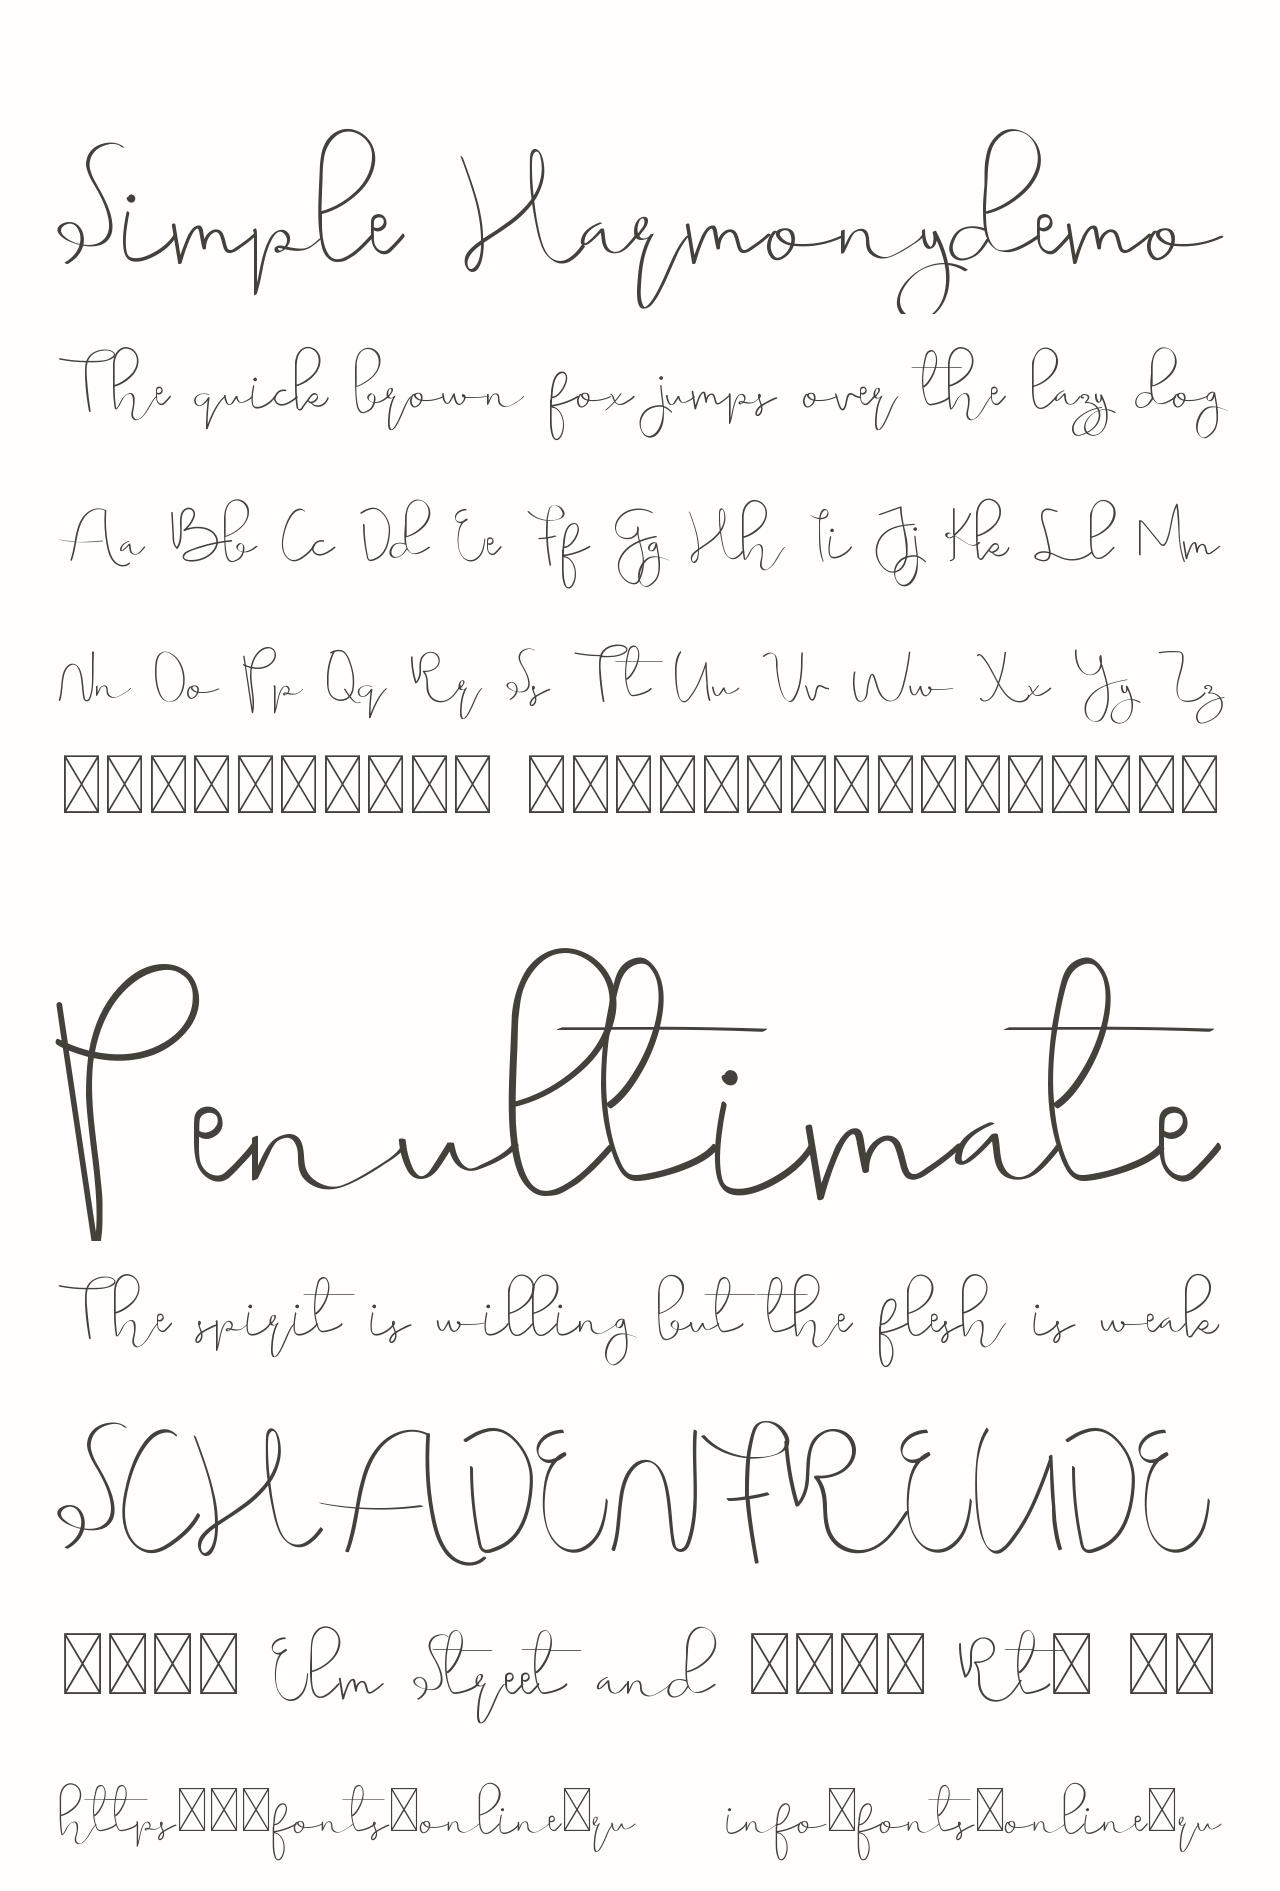 Simple Harmonydemo
The quick brown fox jumps over the lazy dog
Aa Bb Cc Dd Ee Ff Gg Hh Ii Jj Kk Ll Mm
Nn Oo Pp Qq Rr Ss Tt Uu Vv Ww Xx Yy Zz
Penultimate
The spirit is willing but the flesh is weak
SCHADENFREUDE
Elm Street and Rt
https fonts online ru info fonts online ru